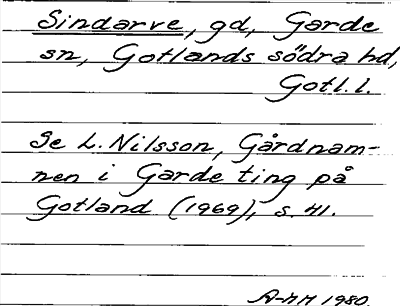 Sindarve, gd, Garde
sn, Gotlands södra hd,
Gotl.l.
Se L. Nilsson, Gårdnam-
nen i Garde ting på
Gotland (1969), s. 41.
A-MH 1980.